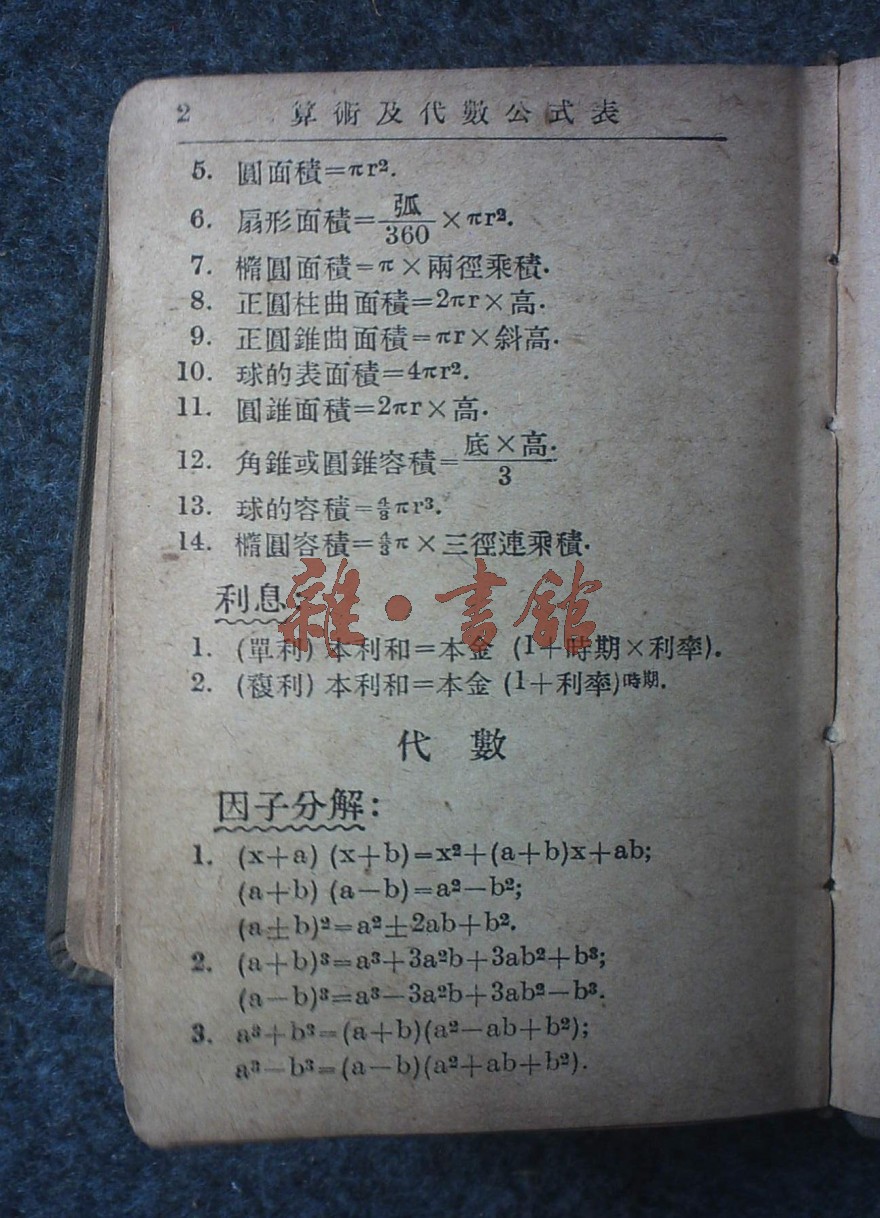 2 算術及代數公式表
5. 圓面積=πr².
6. 扇形面積=弧/360×πr².
7. 橢圓面積=π×兩徑乘積.
8. 正圓柱曲面積=2πr×高.
9. 正圓錐曲面積=πr×斜高.
10. 球的表面積=4πr².
11. 圓錐面積=2πr×高.
12. 角錐或圓錐容積=底×高/3.
13. 球的容積=4/3πr³.
14. 橢圓容積=4/3π×三徑連乘積.
利息:
1. (單利) 本利和=本金 (1+時期×利率).
2. (複利) 本利和=本金 (1+利率)時期.
代 數
因子分解:
1. (x+a) (x+b)=x²+(a+b)x+ab;
(a+b) (a-b)=a²-b²;
(a±b)²=a²±2ab+b².
2. (a+b)³=a³+3a²b+3ab²+b³;
(a-b)³=a³-3a²b+3ab²-b³.
3. a³+b³=(a+b)(a²-ab+b²);
a³-b³=(a-b)(a²+ab+b²).
雜·書館